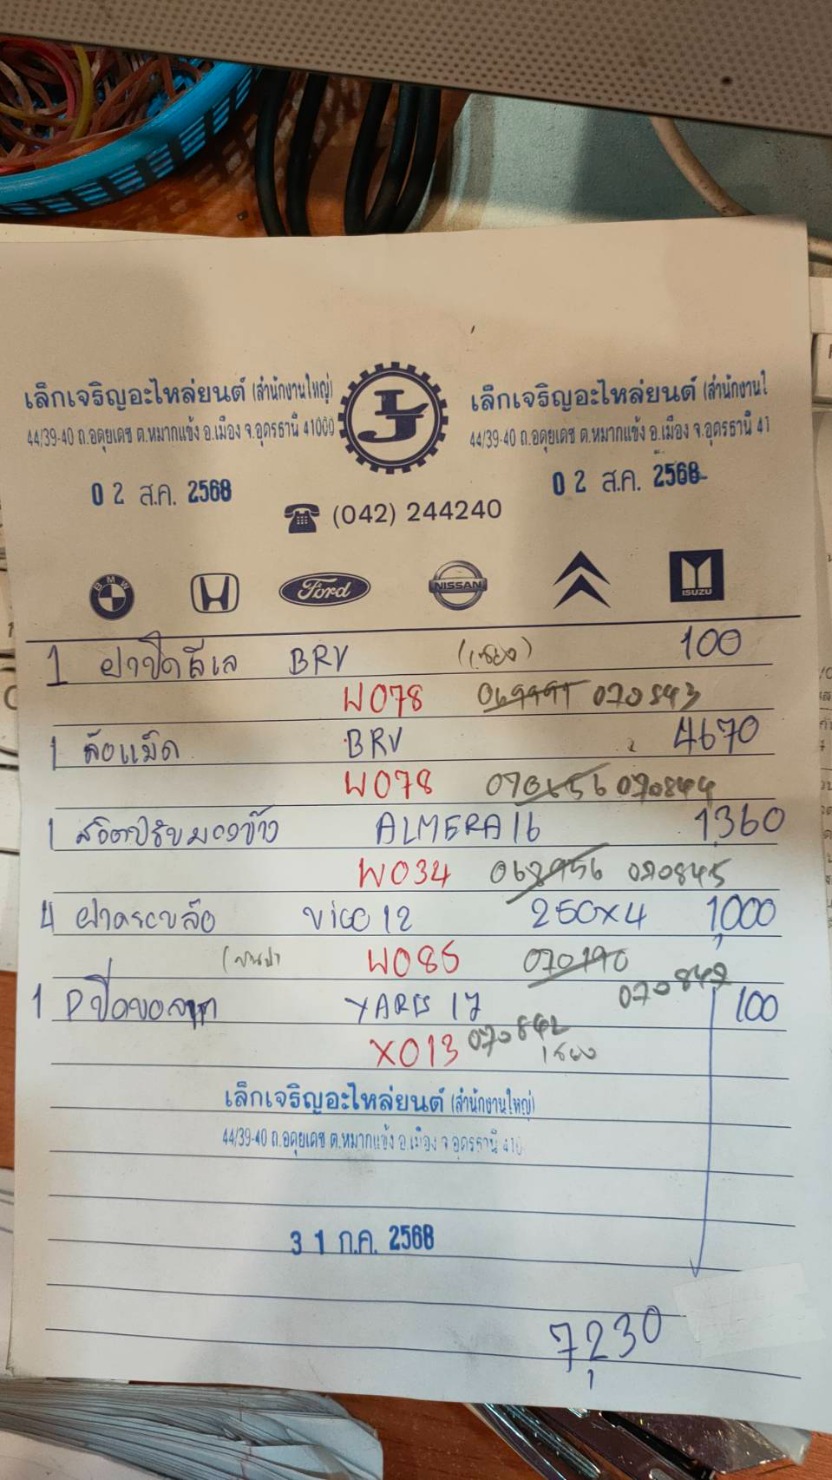 เล็กเจริญอะไหล่ยนต์ (สำนักงานใหญ่)
44/39-40 ถ.อดุยเดช ต.หมากแข้ง อ.เมือง จ.อุดรธานี 41000
02 ส.ค. 2568
เล็กเจริญอะไหล่ยนต์ (สำนักงานใ
44/39-40 ถ.อดุยเดช ต.หมากแข้ง อ.เมือง จ.อุดรธานี 41
02 ส.ค. 2568
(042) 244240
BMW Ford NISSAN ISUZU
1 BRV 100
W078 070843
1 ล้อแม็ก BRV 4670
W078 070844
1 ALMERA16 1,360
W034 068956 070845
4 ฝาครอบล้อ VIGO 12 250x4 1,000
W085 070190
1 YARIS 17 100
X013 070842
เล็กเจริญอะไหล่ยนต์ (สำนักงานใหญ่)
44/39-40 ถ.อดุยเดช ต.หมากแข้ง อ.เมือง จ.อุดรธานี 410
31 ก.ค. 2568
7,230